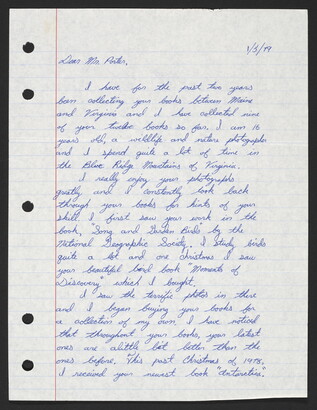 1/5/79
Dear Mr. Porter,
I have for the past two years
been collecting your books between Maine
and Virginia and I have collected nine
of your twelve books so far. I am 16
years old, a wildlife and nature photographer
and I spend quite a lot of time in
the Blue Ridge Mountains of Virginia.
I really enjoy your photographs
greatly and I constantly look back
through your books for hints of your
skill. I first saw your work in the
book, "Song and Garden Birds" by the
National Geographic Society. I study birds
quite a lot and one Christmas I saw
your beautiful bird book "Moments of
Discovery" which I bought.
I saw the terrific photos in there
and I began buying your books for
a collection of my own. I have noticed
that throughout your books your latest
ones are alittle bit better than the
ones before. This past Christmas of, 1978,
I received your newest book "Antarctica".